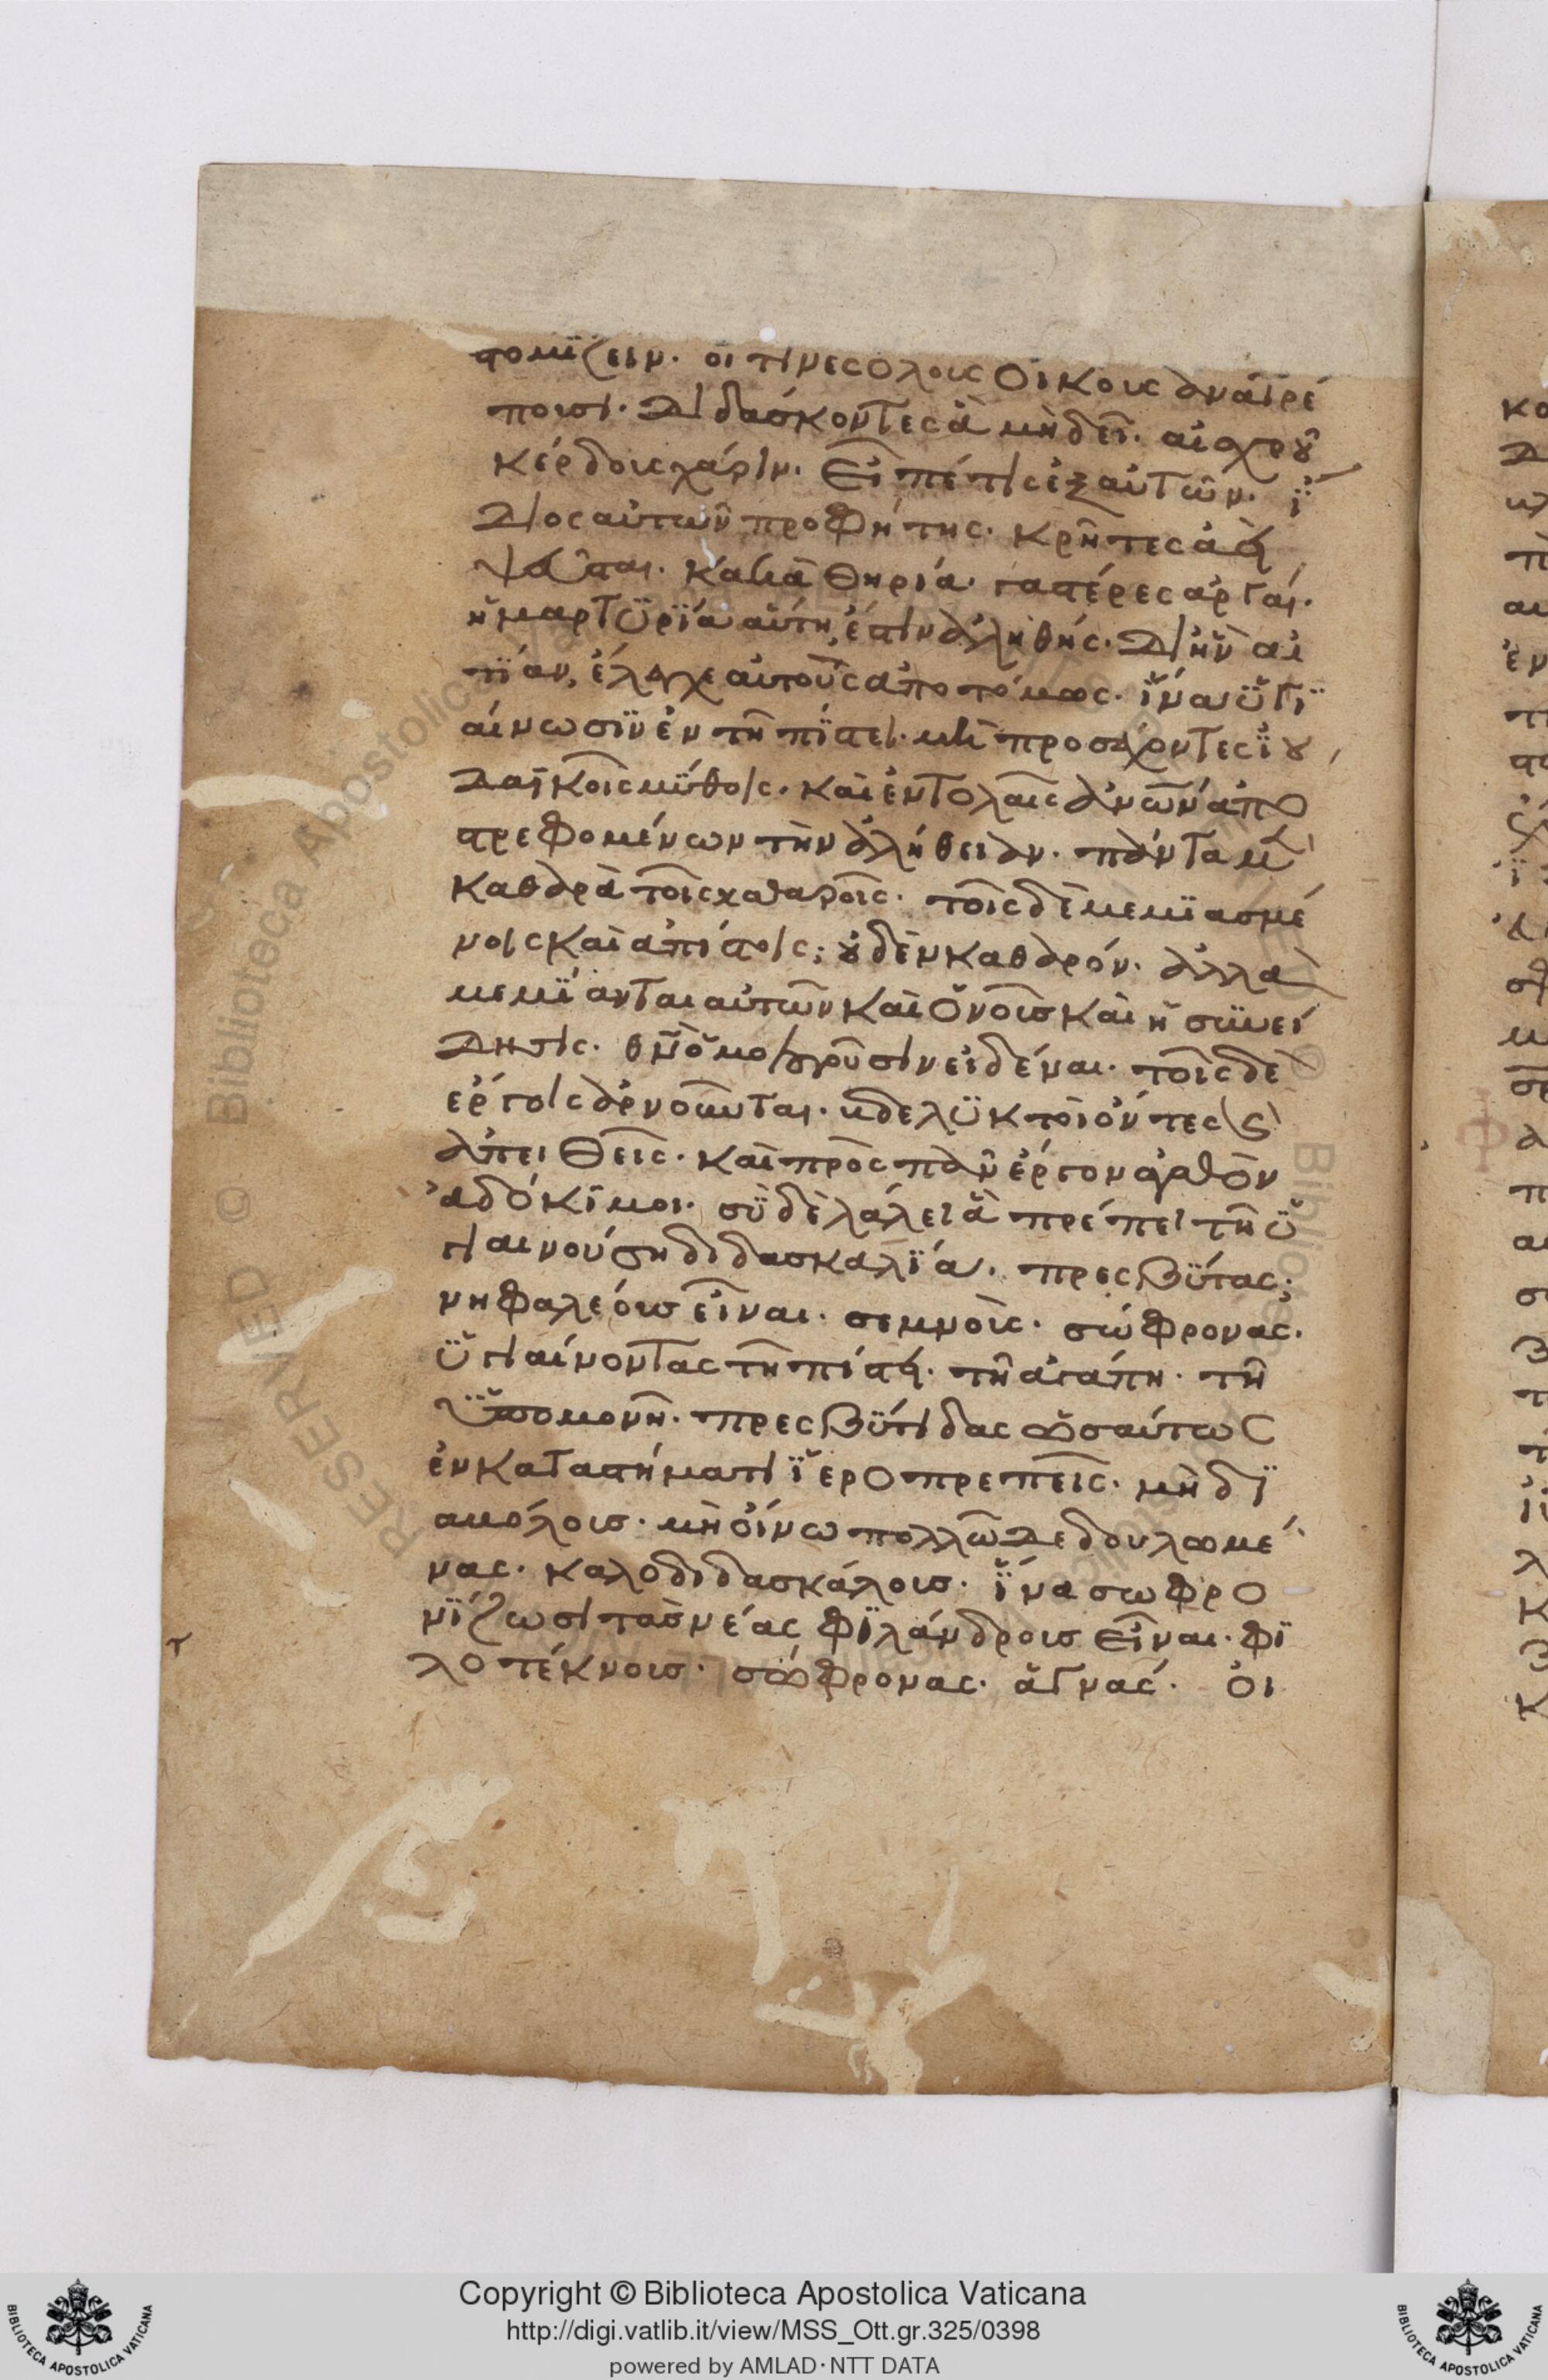 στομϊζειν· οἱ τινες ὅλους οἴκους ἀνατρέ
πουσι· διδάσκοντες ἃ μὴ δεῖ· αἰσχρȣ͂
κέρδους χάριν· εἶπέ τις ἐξ αὐτῶν· ἴ
διος αὐτῶν προφήτης· κρῆτες ἀεὶ
ψεῦσται· κακὰ θηρία· γαστέρες ἀργαί·
ἡ μαρτϋρϊα αὕτη ἐστὶν ἀληθής· δι ἣν αἰ
τϊαν, ἔλεγχε αὐτοὺς ἀποτόμως· ἵνα ὑγϊ
αίνωσϊν ἐν τῆ πϊστει· μὴ προσέχοντες ϊȣ
δαϊκοῖς μϋθοις· καὶ ἐντολαῖς ἀνων ἀπο
στρεφομένων τὴν ἀλήθειαν· πάντα μὲν
καθαρὰ τοῖς καθαροῖς· τοῖς δὲ μεμϊασμέ
νοις καὶ ἀπίστοις; ȣδὲν καθαρόν· ἀλλὰ
μεμϊανται αὐτῶν καὶ ὁ νοῦς καὶ ἡ συνεί
δησις· θν ὁμολογοῦσιν εἰδέναι· τοῖς δὲ
ἔργοις ἀρνοῦνται· βδελϋκτοὶ ὄντες κ
ἀπειθεῖς· καὶ πρὸς πᾶν ἔργον ἀγαθὸν
ἀδόκϊμοι· σϋ δὲ λάλει ἃ πρέπει τῆ ϋ
γιαινούση διδασκαλϊα· πρεσβϋτας;
νηφαλέους εἶναι· σεμνοὺς· σώφρονας·
ϋγιαίνοντας τῆ πίστει· τῆ ἀγάπη· τῆ
ϋπομονῆ· πρεσβϋτιδας ὡσαύτως
ἐν καταστήματι ϊεροπρεπεῖς· μὴ δϊ
αβόλους· μὴ οἴνω πολλῶ δεδουλωμέ
νας· καλοδιδασκάλους· ϊνα σωφρο
νϊζωσι τὰς νέας φϊλάνδρους εἶναι· φϊ
λοτέκνους· σώφρονας· ἁγνας· οἰ
Copyright © Biblioteca Apostolica Vaticana
http://digi.vatlib.it/view/MSS_Ott.gr.325/0398
powered by AMLAD·NTT DATA